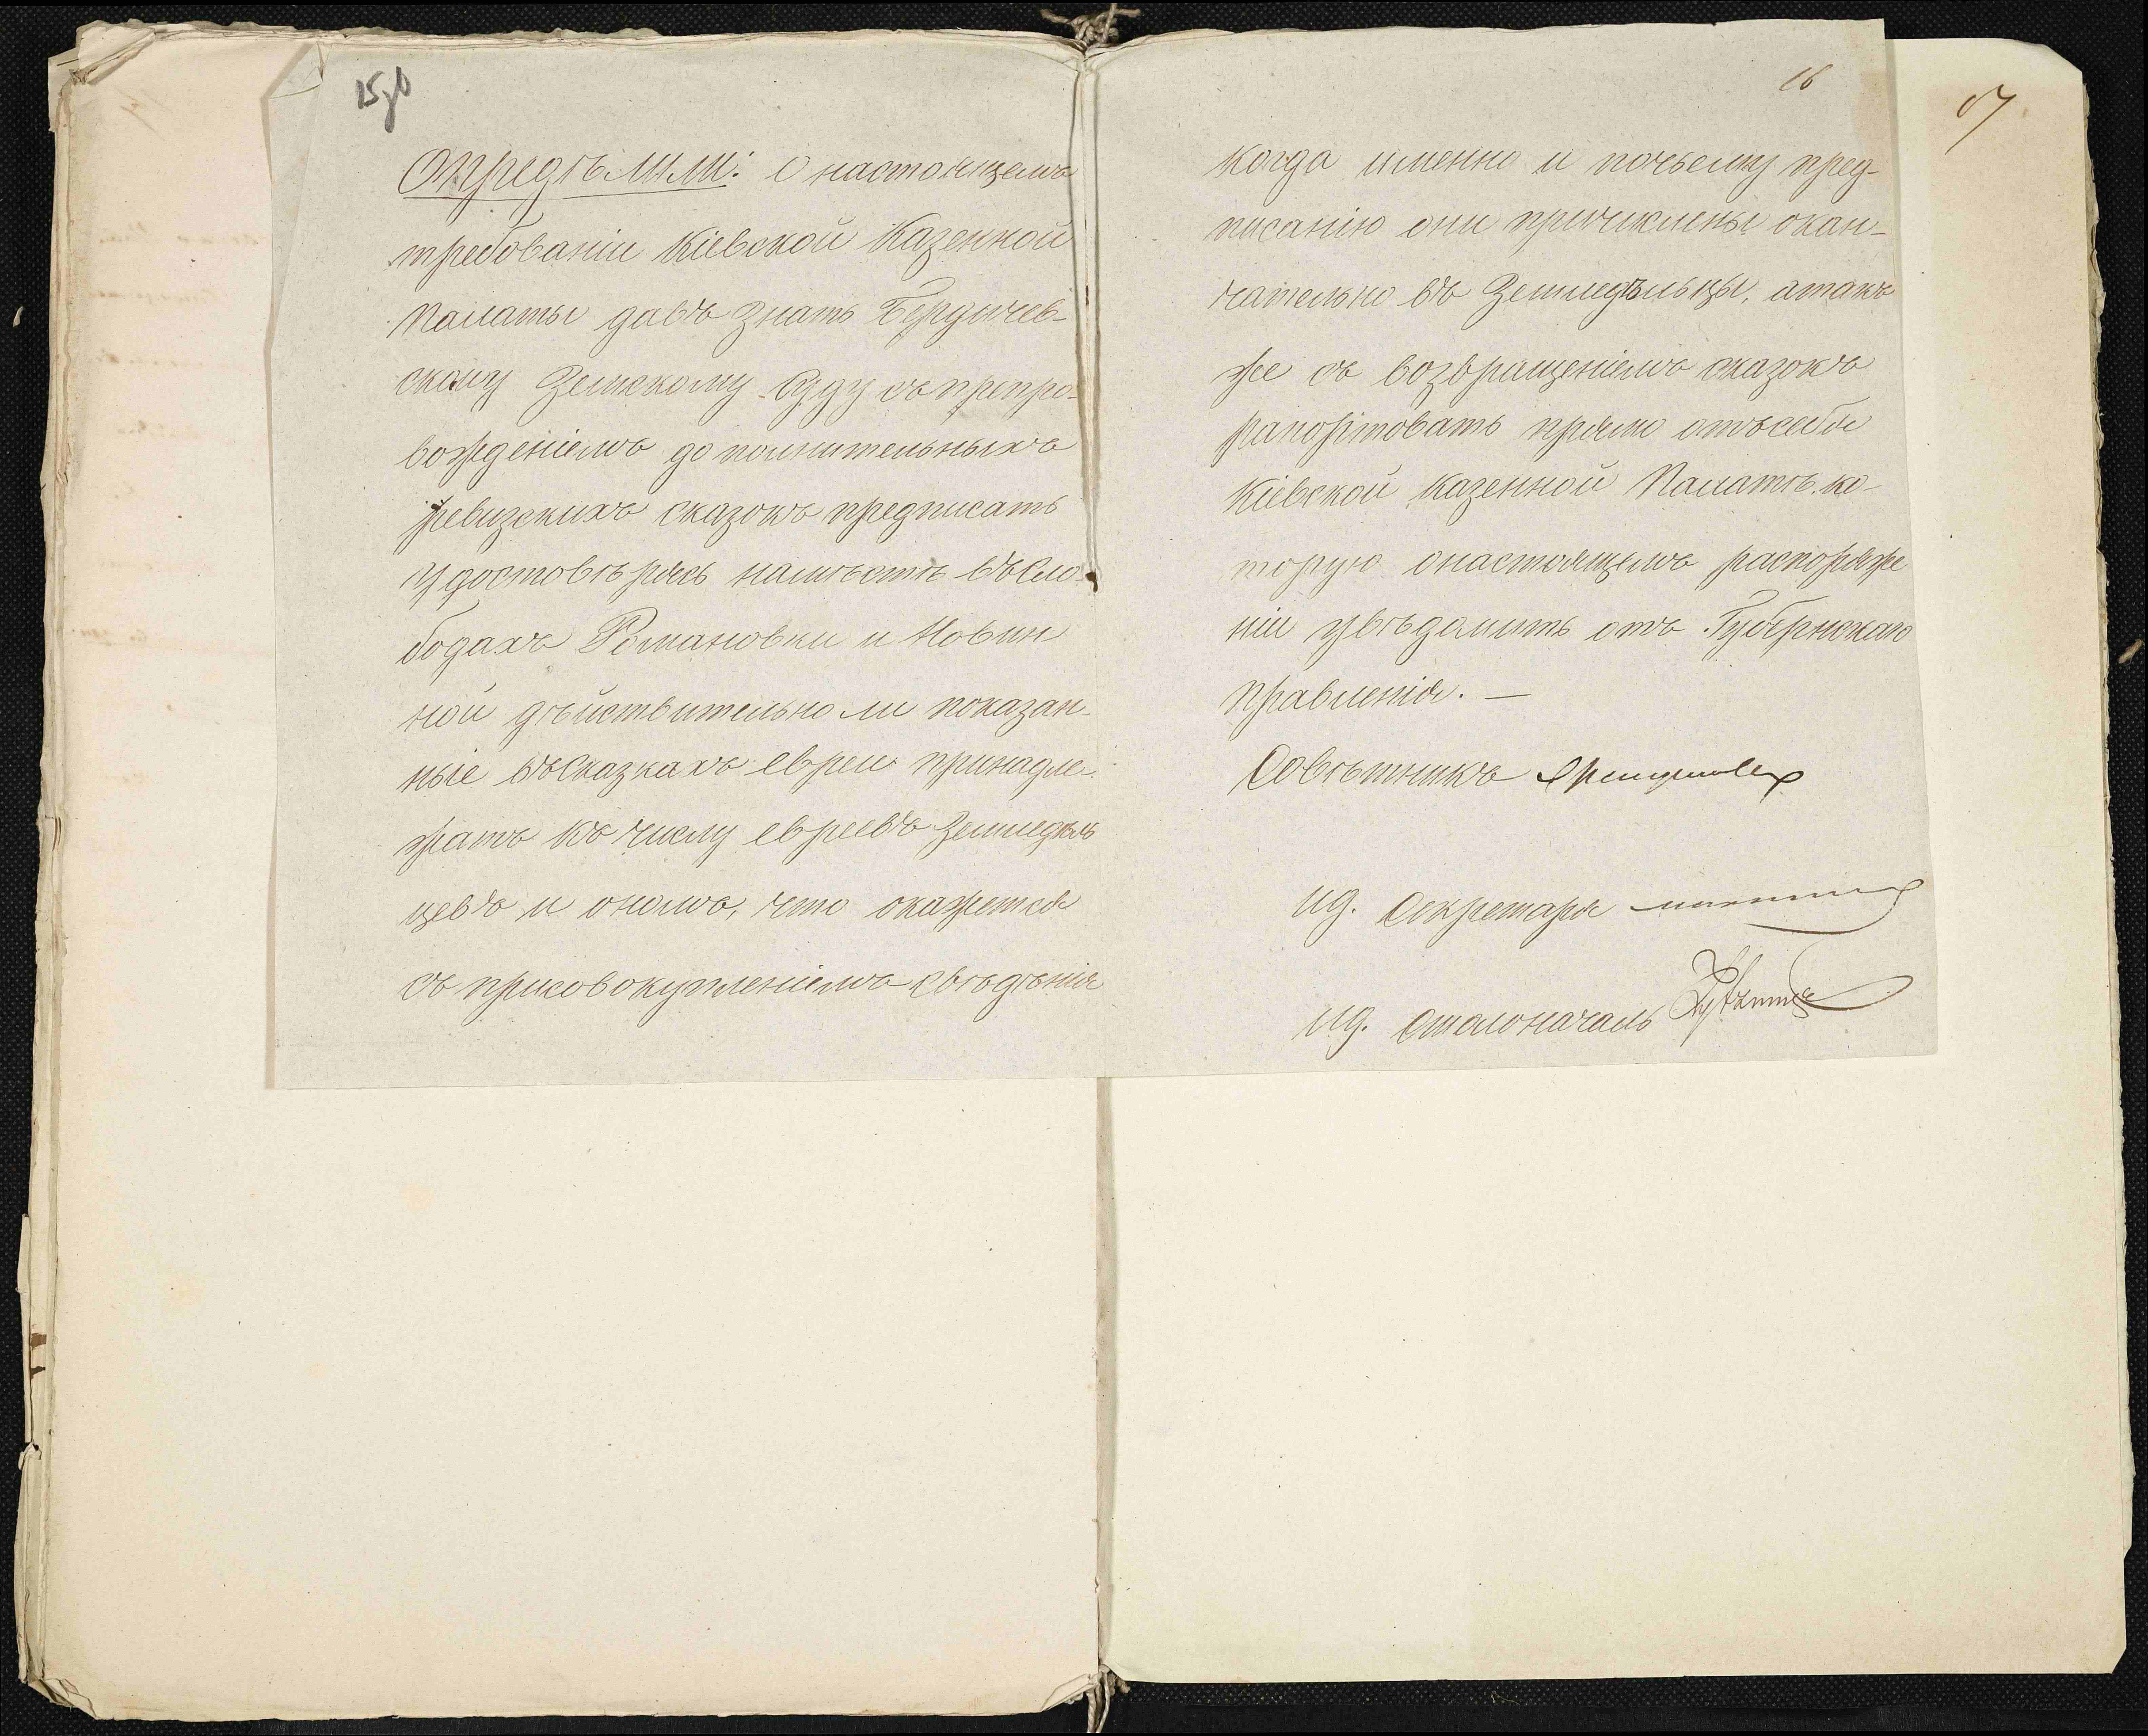 15об
Опредѣлили: О настоящемъ
требованіи Кіевской Казенной
Палаты давъ знать Бердичев-
скому Земскому Суду съ препро-
вожденіемъ дополнительныхъ
ревизскихъ сказокъ предписать
удостовѣрясь намѣстѣ въ Сло-
бодахъ Романовки и Новин
ной дѣйствительно ли показан-
ные въ Сказкахъ евреи принадле-
жатъ къ числу евреевъ земледѣль
цевъ и ономъ, что окажется
съ присовокупленіемъ свѣдѣнія
16
17
когда именно и почьему пред-
писанію они причислены окан-
чательно въ земледѣльцы, атакъ
же съ возвращеніемъ сказокъ
рапортовать прямо отъ себя
Кіевской Казенной Палатѣ, ко-
торую онастоящемъ распоряже
ніи увѣдомить отъ Губернскаго
Правленія. —
Совѣтникъ
ид. Секретаря
ид. Столоначаль